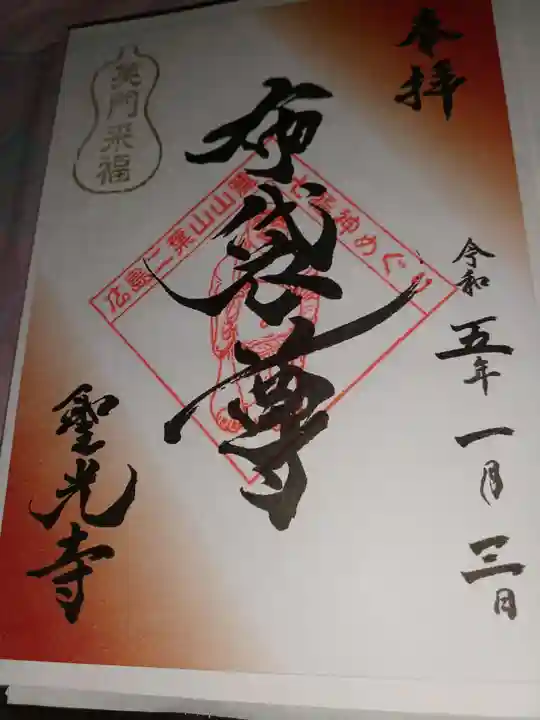 奉拝
令和五年一月三日
布袋尊
広島二葉山山麓七福神めぐり
笑門来福
聖光寺